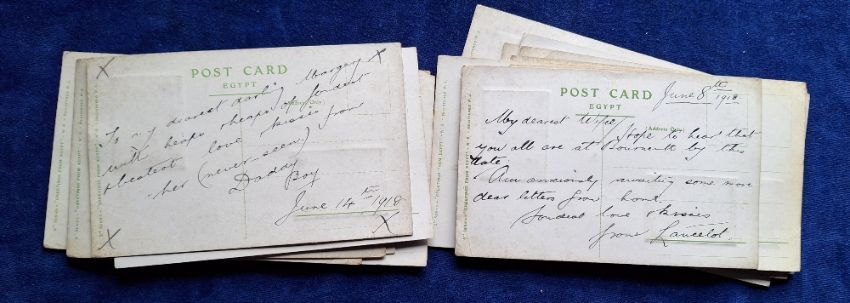 POST CARD
EGYPT
(Address Only)
To my dearest darling Margery
with heaps & heaps of fondest
& best love & kisses from
her (never-seen)
Daddy
Boy
June 14th 1918
POST CARD
EGYPT
(Address Only)
June 8th 1918
My dearest
Hope to hear that
you all are at Bournemth by this
date.
Am anxiously awaiting some more
dear letters from home.
Fondest love & kisses
from Lancelot.